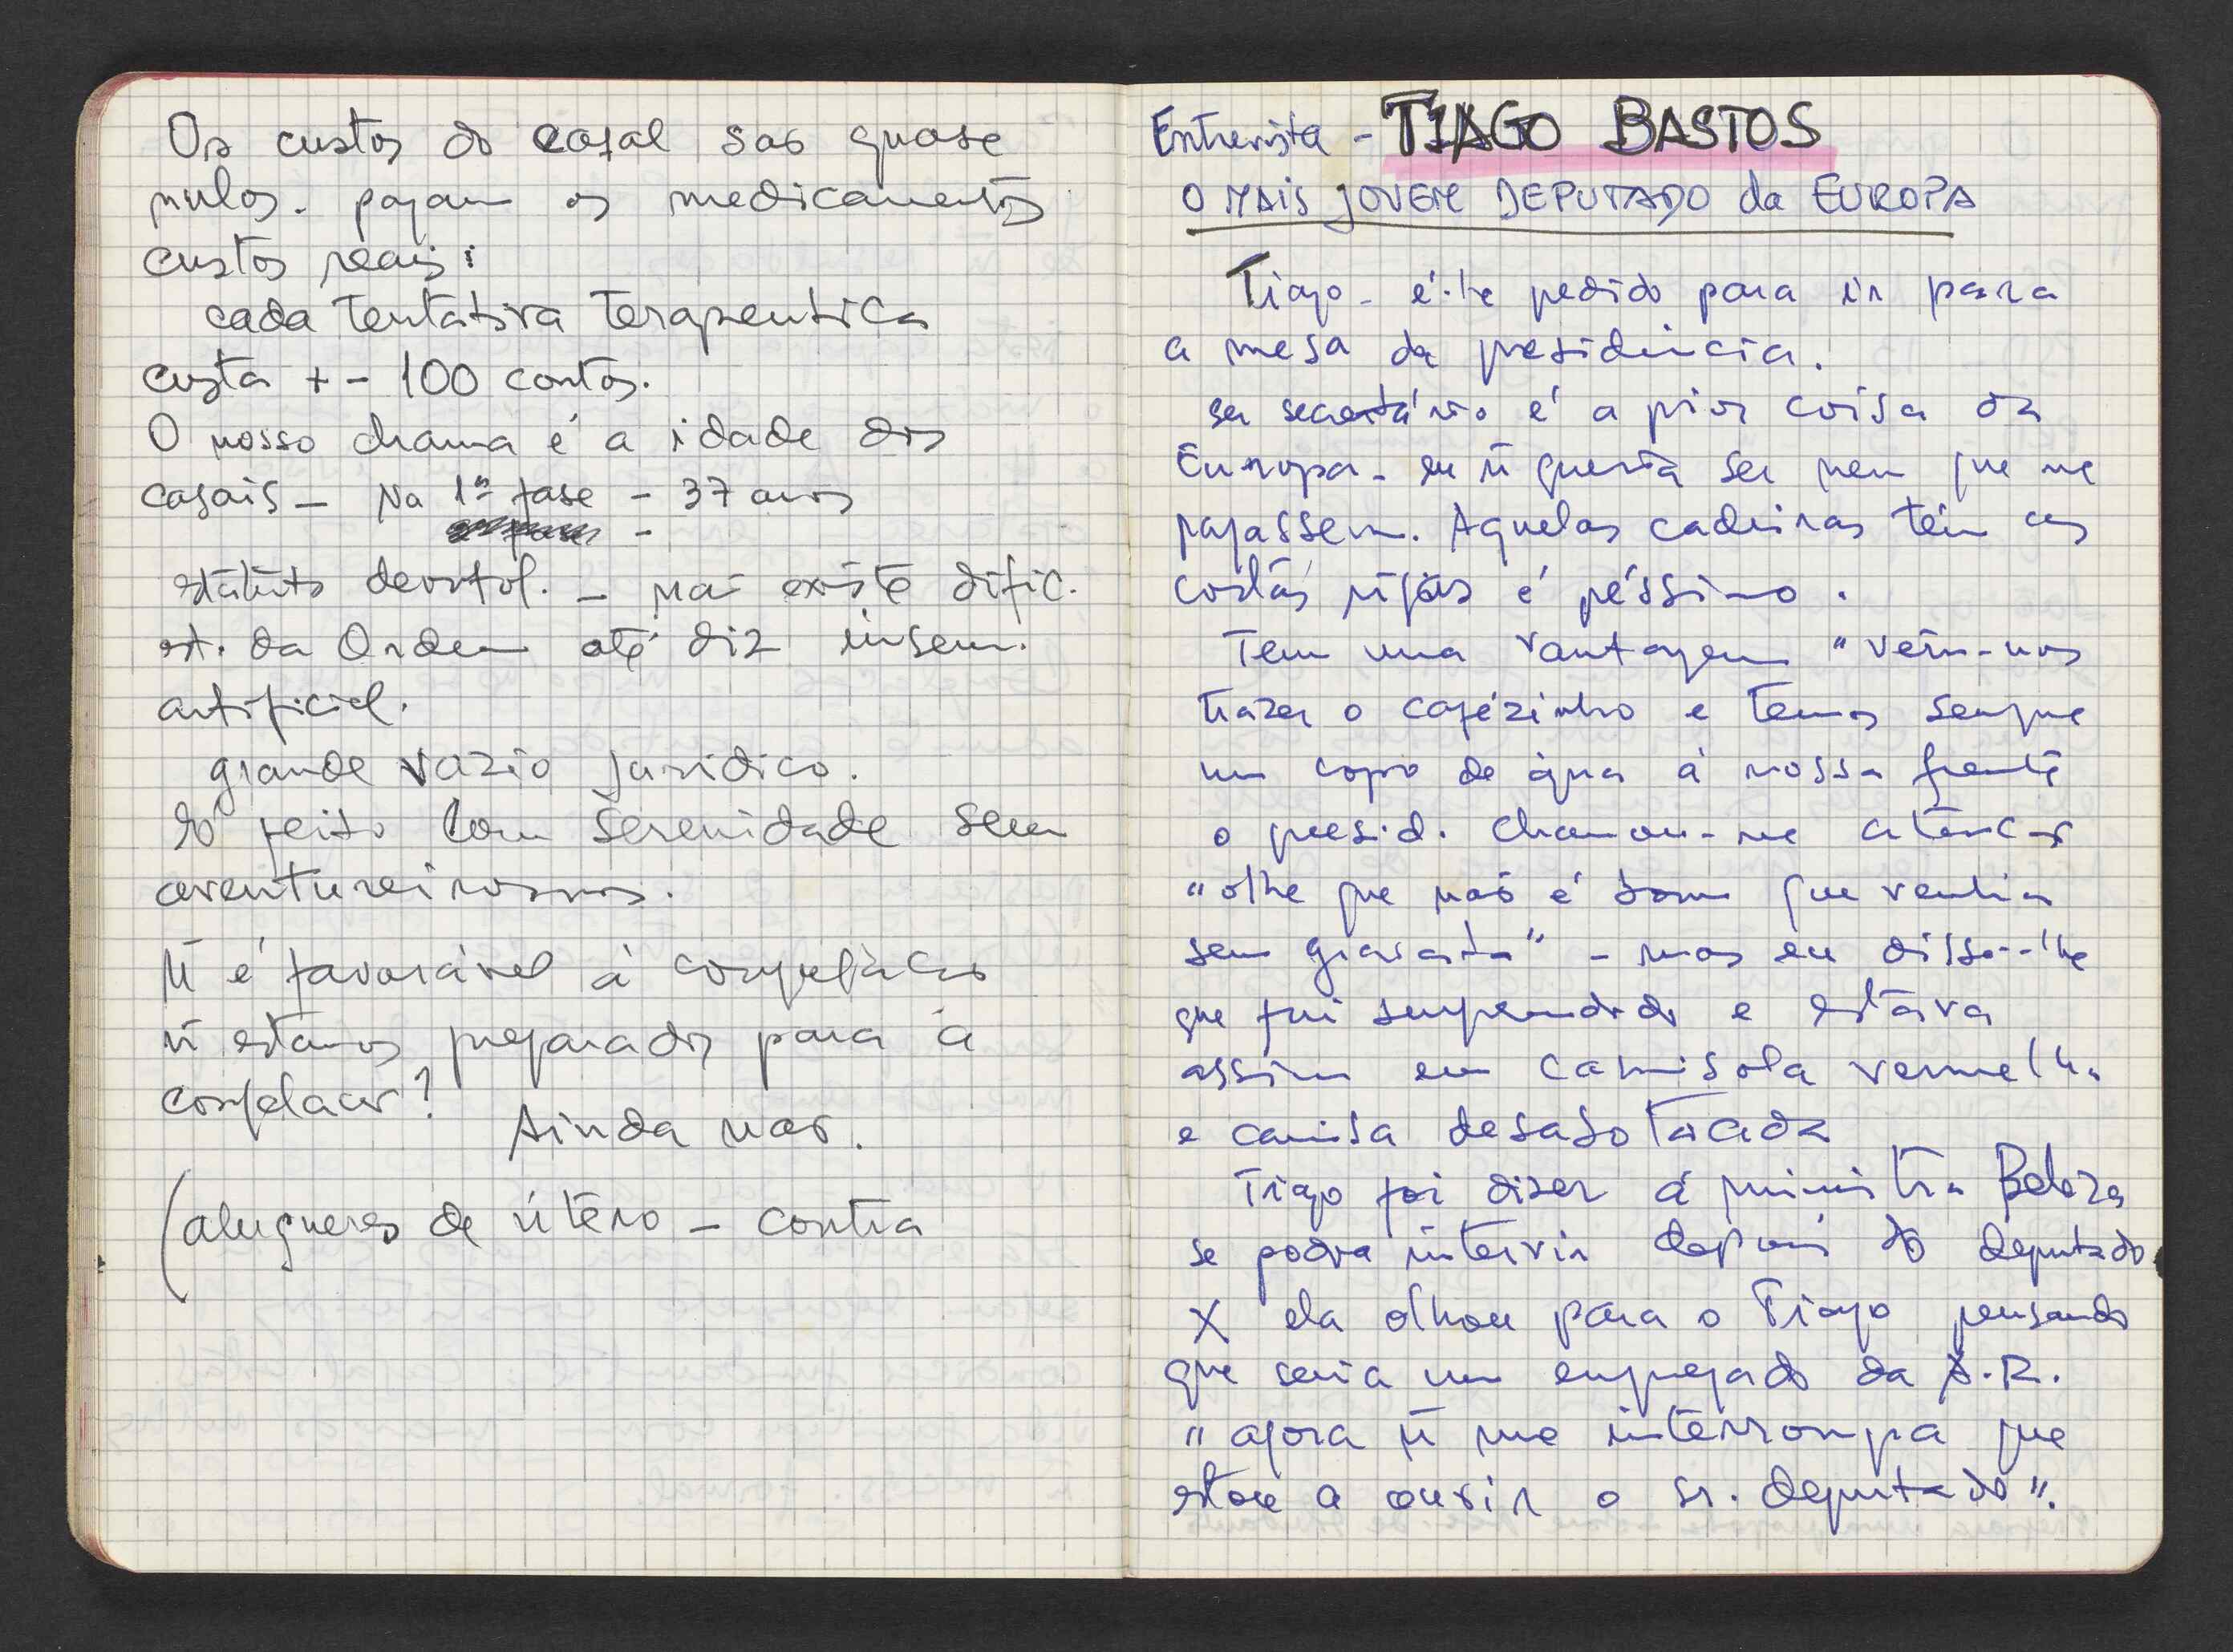 Os custos do casal são quase
nulos. pagam os medicamentos
custos reais:
cada tentativa terapeutica
custa + - 100 contos.
O nosso drama é a idade dos
casais - Na 1ª fase - 37 anos
-
estatuto deontol. - não existe dific.
est. da Ordem até diz insem.
artificial.
grande vazio juridico.
Só feito com serenidade sem
aventureirismos.
ñ é favorável à congelação
ñ estamos preparados para a
congelação?
Ainda não.
(alugueres de útero - contra
Entrevista - TIAGO BASTOS
O MAIS JOVEM DEPUTADO da EUROPA
Tiago - é-lhe pedido para ir para
a mesa da presidência.
ser secretário é a pior coisa da
Europa - eu ñ queria ser nem que me
pagassem. Aquelas cadeiras têm as
costas rijas é péssimo.
Tem uma vantagem "vêm-nos
trazer o cafézinho e temos sempre
um copo de água à nossa frente
o presid. chamou-me atenção
"olhe que não é bom que venha
sem gravata" - mas eu disse-lhe
que fui surpreendido e estava
assim em camisola vermelha
e camisa desabotoada
Tiago foi dizer à ministra Beleza
se podia intervir depois do deputado
X ela olhou para o Tiago pensando
que seria um empregado da A.R.
"agora ñ me interrompa que
estou a ouvir o sr. deputado".